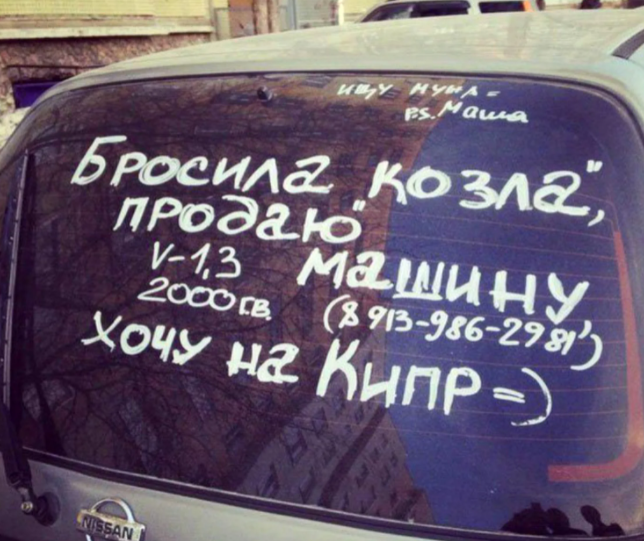 ищу мужа =
P.S. Маша
Бросила "козла",
продаю
V-1,3 машину
2000 г.в. (8 913-986-2981)
хочу на Кипр =)
NISSAN